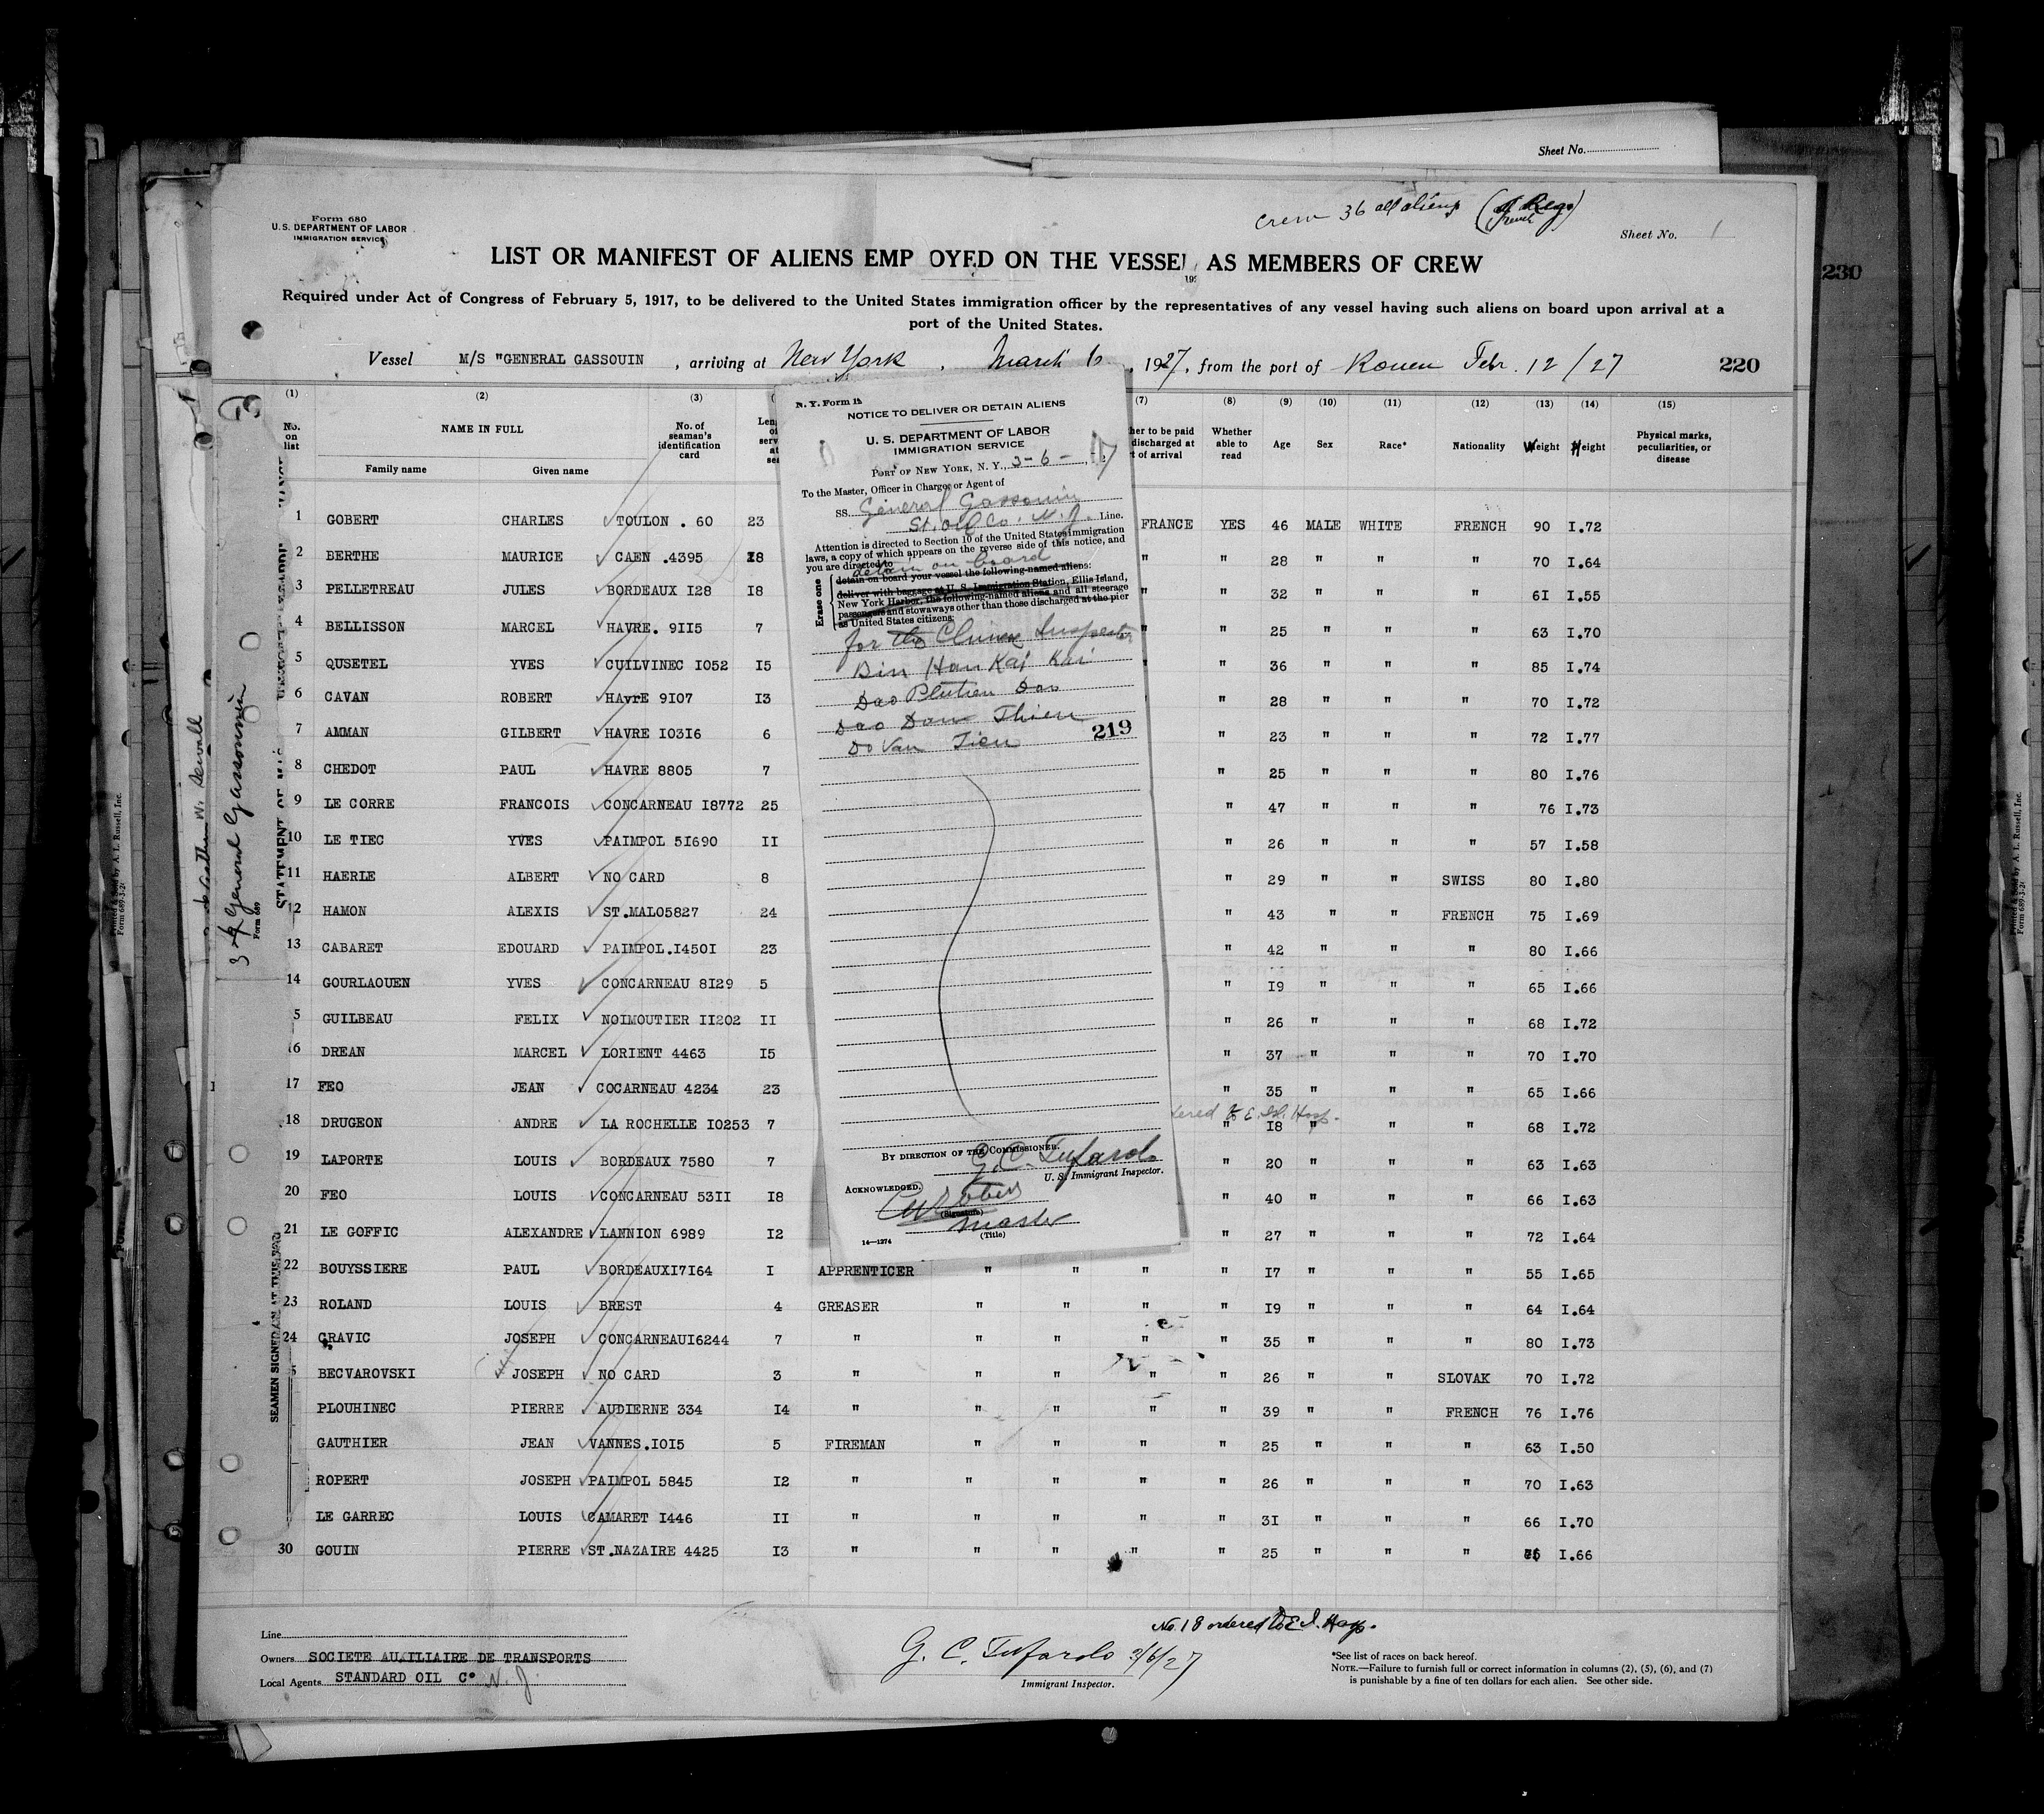 Sheet No.
Form 680
U.S. DEPARTMENT OF LABOR
IMMIGRATION SERVICE
Crew 36 all aliens (French Reg)
Sheet No. 1
LIST OR MANIFEST OF ALIENS EMP OYED ON THE VESSEL AS MEMBERS OF CREW
Required under Act of Congress of February 5, 1917, to be delivered to the United States immigration officer by the representatives of any vessel having such aliens on board upon arrival at a
port of the United States.
230
Vessel M/S "GENERAL GASSOUIN , arriving at New York , March 6 , 1927, from the port of Rouen Febr. 12/27 220
(1) (2) (3) (7) (8) (9) (10) (11) (12) (13) (14) (15)
No. on list NAME IN FULL Family name Given name No. of seaman's identification card Whether able to read Age Sex Race* Nationality Weight Height Physical marks, peculiarities, or disease
1 GOBERT CHARLES TOULON . 60 23 FRANCE YES 46 MALE WHITE FRENCH 90 I.72
2 BERTHE MAURICE CAEN .4395 I8 " " 28 " " " 70 I.64
3 PELLETREAU JULES BORDEAUX I28 I8 " " 32 " " " 6I I.55
4 BELLISSON MARCEL HAVRE. 9II5 7 " " 25 " " " 63 I.70
5 QUSETEL YVES GUILVINEC I052 I5 " " 36 " " " 85 I.74
6 CAVAN ROBERT HAvrE 9I07 I3 " 28 " " " 70 I.72
7 AMMAN GILBERT HAVRE I03I6 6 " 23 " " " 72 I.77
8 CHEDOT PAUL HAVRE 8805 7 " 25 " " " 80 I.76
9 LE CORRE FRANCOIS CONCARNEAU I8772 25 " 47 " " " 76 I.73
10 LE TIEC YVES PAIMPOL 5I690 II " 26 " " " 57 I.58
11 HAERLE ALBERT NO CARD 8 " 29 " " SWISS 80 I.80
12 HAMON ALEXIS ST.MALO5827 24 " 43 " " FRENCH 75 I.69
13 CABARET EDOUARD PAIMPOL.I450I 23 " 42 " " " 80 I.66
14 GOURLAOUEN YVES CONCARNEAU 8I29 5 " I9 " " " 65 I.66
5 GUILBEAU FELIX NOIMOUTIER II202 II " 26 " " " 68 I.72
16 DREAN MARCEL LORIENT 4463 I5 " 37 " " " 70 I.70
17 FEO JEAN COCARNEAU 4234 23 " 35 " " " 65 I.66
ered to E. Isl. Hosp.
18 DRUGEON ANDRE LA ROCHELLE I0253 7 " I8 " " " 68 I.72
19 LAPORTE LOUIS BORDEAUX 7580 7 " 20 " " " 63 I.63
20 FEO LOUIS CONCARNEAU 53II I8 " 40 " " " 66 I.63
21 LE GOFFIC ALEXANDRE LANNION 6989 I2 " 27 " " " 72 I.64
22 BOUYSSIERE PAUL BORDEAUXI7I64 I APPRENTICER " " " " I7 " " " 55 I.65
23 ROLAND LOUIS BREST 4 GREASER " " " " I9 " " " 64 I.64
24 GRAVIC JOSEPH CONCARNEAUI6244 7 " " " " " 35 " " " 80 I.73
5 BECVAROVSKI JOSEPH NO CARD 3 " " " " " 26 " " SLOVAK 70 I.72
PLOUHINEC PIERRE AUDIERNE 334 I4 " " " " " 39 " " FRENCH 76 I.76
GAUTHIER JEAN VANNES.I0I5 5 FIREMAN " " " " 25 " " " 63 I.50
ROPERT JOSEPH PAIMPOL 5845 I2 " " " " " 26 " " " 70 I.63
LE GARREC LOUIS CAMARET I446 II " " " " " 3I " " " 66 I.70
30 GOUIN PIERRE ST.NAZAIRE 4425 I3 " " " " " 25 " " " I.66
N. Y. Form
NOTICE TO DELIVER OR DETAIN ALIENS
U. S. DEPARTMENT OF LABOR
IMMIGRATION SERVICE
PORT OF NEW YORK, N. Y., 3-6-27
To the Master, Officer in Charge, or Agent of
SS. General Gassouin
St. Oil Co. N. J. Line.
Attention is directed to Section 10 of the United States immigration
laws, a copy of which appears on the reverse side of this notice, and
you are directed to
detain on board
Erase one
detain on board your vessel the following-named aliens:
deliver with baggage at U. S. Immigration Station, Ellis Island,
New York Harbor, the following-named aliens and all steerage
passengers and stowaways other than those discharged at the pier
as United States citizens:
for the Chinese Inspector
Din Han Kai Kai
Dao Dao
Dao Dam Thien
Do Van Tien
219
BY DIRECTION OF THE COMMISSIONER.
G. C. Tufarolo
U. S. Immigrant Inspector.
ACKNOWLEDGED.
(Signature)
Master
(Title)
14—1274
3 General Gassouin
Form 689
SEAMEN SIGNED ON AT THIS
Printed & Sold by A. L. Russell, Inc.
No. 18 ordered to E. I. Hosp.
Line
Owners SOCIETE AUXILIAIRE DE TRANSPORTS
Local Agents STANDARD OIL Co N. J.
G. C. Tufarolo 3/6/27
Immigrant Inspector.
*See list of races on back hereof.
NOTE.—Failure to furnish full or correct information in columns (2), (5), (6), and (7)
is punishable by a fine of ten dollars for each alien. See other side.